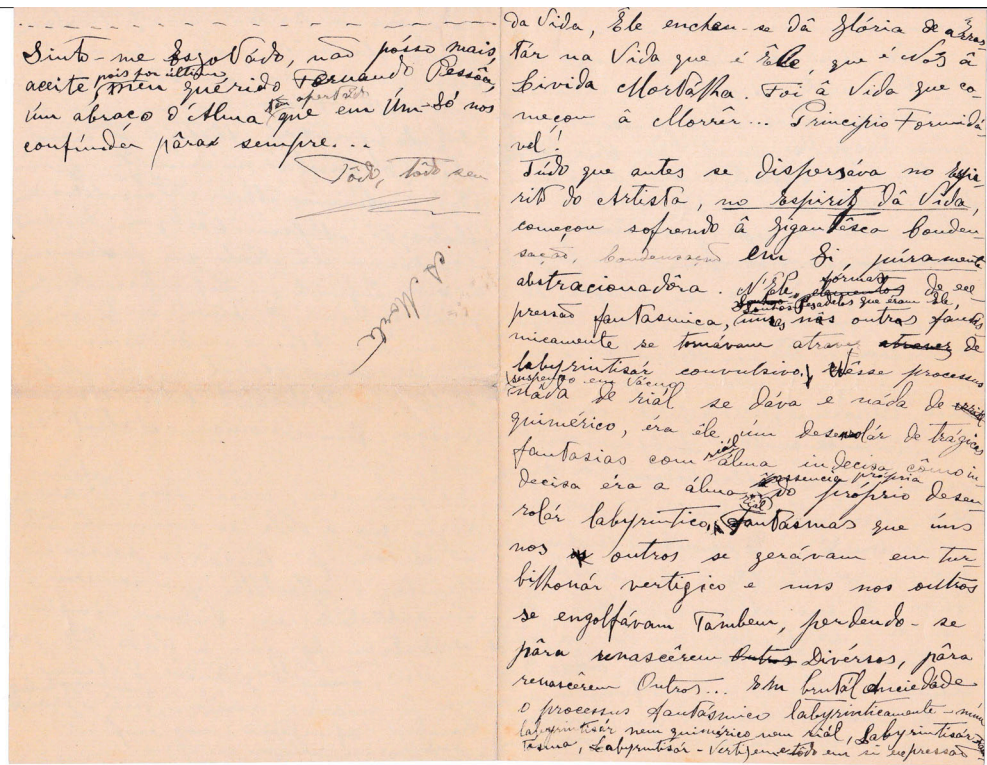 Sinto-me EsgoVádo, não pósso mais,
aceite, pois por último, meu quérido Fernando Pessôa,
úm abraço d'Alma tão apertádo que em Úm-só nos
confúnda pâra sempre...
Tôdo, tôdo seu
A Morte
da Vida, Êle encheu-se dâ Glória de arras
tár na Vida que é Êle, que é Nós â
Livida Mortálha. Foi â Vida que co-
meçou â Morrêr... Principio Formidá-
vel!
Túdo que antes se dispersáva no Espi-
rito do Artista, no Espirito dâ Vida,
começou sofrendo â Gigantêsca Conden-
sação, Condensação em Si, púramente
abstracionadôra. N'Êle, fórmas de ex-
Pesadêlos que éram Êle,
pressão fantasmica, úns nos outros fantás
micamente se tomávam atravez de
labyrintisár convulsivo. Nêsse processus
suspenso em Vácuo
náda de riál se dáva e náda de
quimérico, éra êle úm desenrolár de trágicas
fantasias com álma indecisa, cômo in-
decisa éra a álma essencia própria do próprio desen
riál
rolár labyrintico, Fantasmas que úns
nos outros se gerávam em tur-
bilhonár vertigico e uns nos outros
se engolfávam Tambem, perdendo-se
pâra renascêrem Outros Divérsos, pâra
renascêrem Outros... Em brutál Anciedáde
o processus fantásmico labyrinticamente-núm
labyrintisár nem quimérico nem riál, Labyrintisár-Fan
tasma, Labyrintisár-Vertigem todo em si expressão